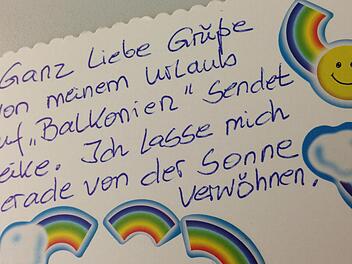 Ganz Liebe Grüße
von meinem Urlaub
auf „Balkonien" Sendet
eike. Ich lasse mich
erade von der Sonne
verwöhnen.